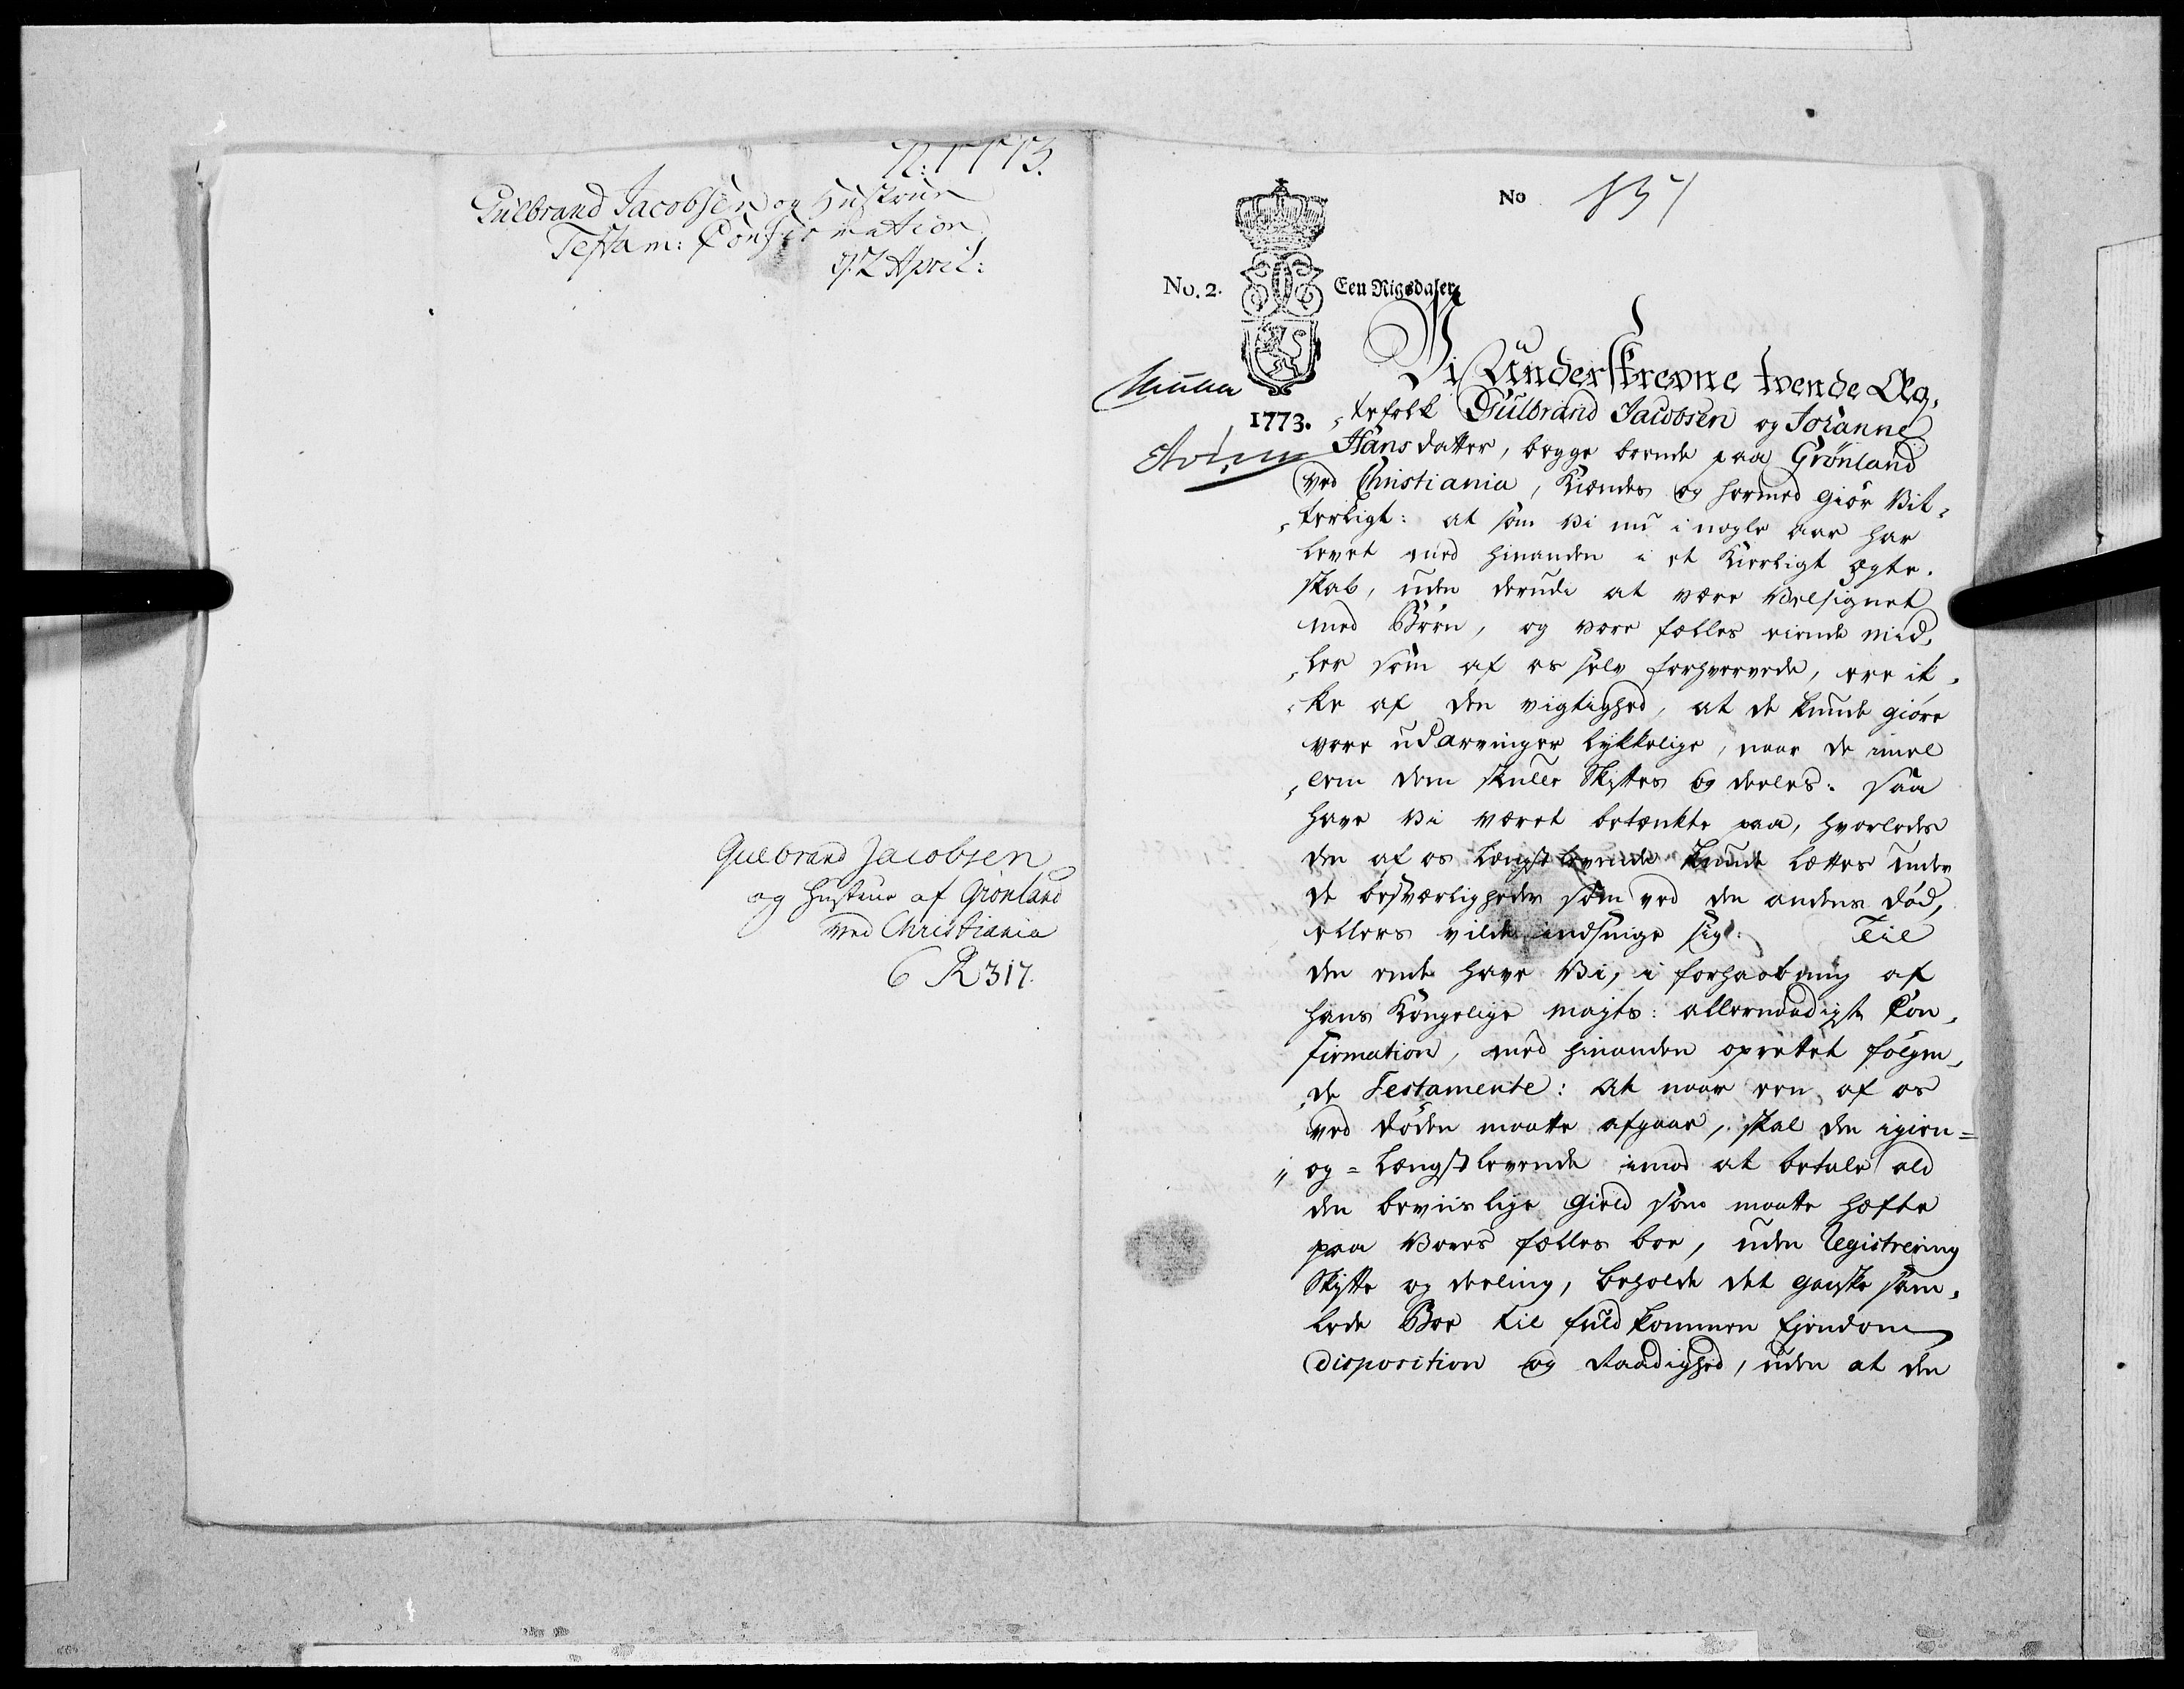 N: 1773.
Gulbrand Jacobsen og Hustrue
Testam: Confirmation
April:
Gulbrand Jacobsen
og Hustrue af Grönland
ved Christiania
6 R 317.
No
No. 2.
Een Rigsdaler
1773.
Vi Underskrevne tvende Æg„
„tefolk Gulbrand Jacobsen og Johanne
Hans datter, begge boende paa Grönland
ved Christiania, Kiendes og hermed giör Vit„
„terligt: at som Vi nu i nogle aar har
levet med hinanden i et Kierligt ægte„
skab, uden derudi at være Velsignet
med Börn, og vore fælles eiende mid„
„ler som af os selv forhvervede, ere ik„
„ke af den vigtighed, at de kunde giöre
vore udarvinger lykkelige, naar de imel
„lem dem skulle Skiftes og deeles. Saa
have Vi været betænkte paa, hvorledes
den af os længstlevende kunde lættes under
de besværligheder som ved den andens död,
ellers vilde indsnige sig. Til
den ende have Vi, i forhaabning af
hans Kongelige Majts: allernaadigste Con„
firmation, med hinanden oprettet fölgen„
„de Testamente: at naar een af os
ved döden maatte afgaae, skal den igien=
og = længstlevende imod at betale ald
den beviislige Gield som maatte hæfte
paa Voers fælles boe, uden Registrering
Skifte og deeling, beholde det ganske sam„
lede Boe til fuldkommen Ejendom
disposition og Raadighed, uden at den